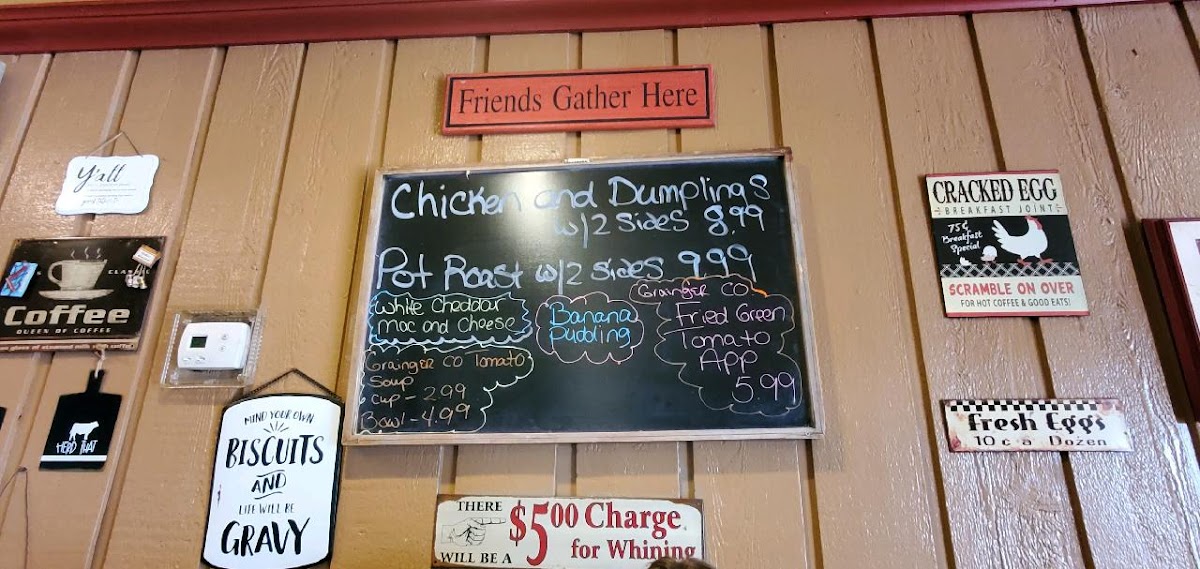 Friends Gather Here
Chicken and Dumplings
w/2 sides 8.99
Pot Roast w/2 sides 9.99
White Cheddar
Mac and Cheese
Banana
Pudding
Grainger CO
Fried Green
Tomato
App
5.99
Grainger CO Tomato
Soup
cup - 2.99
Bowl - 4.99
Y'all
Coffee
QUEEN OF COFFEE
HERD THAT
MIND YOUR OWN
BISCUITS
AND
LIFE WILL BE
GRAVY
THERE
WILL BE A
$5.00 Charge
for Whining
CRACKED EGG
BREAKFAST JOINT
75¢
Breakfast
Special
SCRAMBLE ON OVER
FOR HOT COFFEE & GOOD EATS!
fresh Eggs
10 c a Dozen